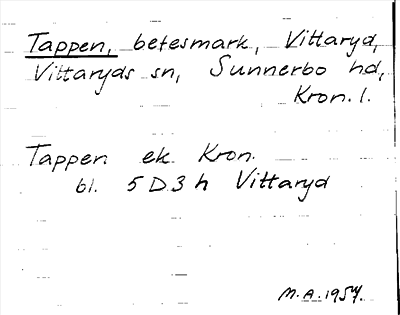 Tappen, betesmark, Vittaryd,
Vittaryds sn, Sunnerbo hd,
Kron. l.
Tappen ek. Kron.
bl. 5 D 3 h Vittaryd
M.A. 1954.